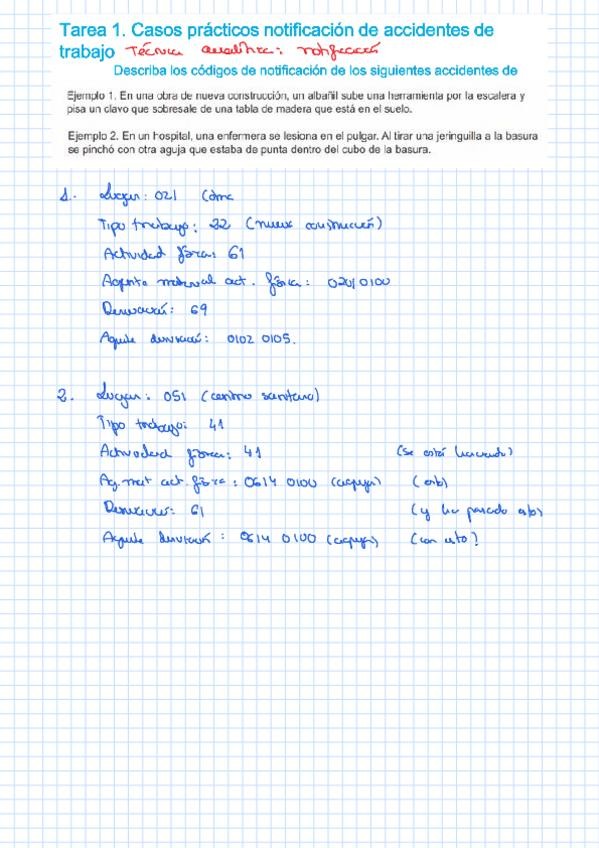 Tarea 1. Casos prácticos notificación de accidentes de
trabajo Técnica analítica: notificación
Describa los códigos de notificación de los siguientes accidentes de
Ejemplo 1. En una obra de nueva construcción, un albañil sube una herramienta por la escalera y
pisa un clavo que sobresale de una tabla de madera que está en el suelo.
Ejemplo 2. En un hospital, una enfermera se lesiona en el pulgar. Al tirar una jeringuilla a la basura
se pinchó con otra aguja que estaba de punta dentro del cubo de la basura.
1. Lugar: 021
Tipo trabajo: 22 (nueva construcción)
Actividad física: 61
Agente material act. física: 0201 0100
Desviación: 69
Agente desviación: 0102 0105.
2. Lugar: 051 (centro sanitario)
Tipo trabajo: 41
Actividad física: 41 (se está haciendo)
Ag. mat act. física: 0614 0100 (aguja) (esto)
Desviación: 61 (y ha pasado esto)
Agente desviación: 0614 0100 (aguja) (con esto)